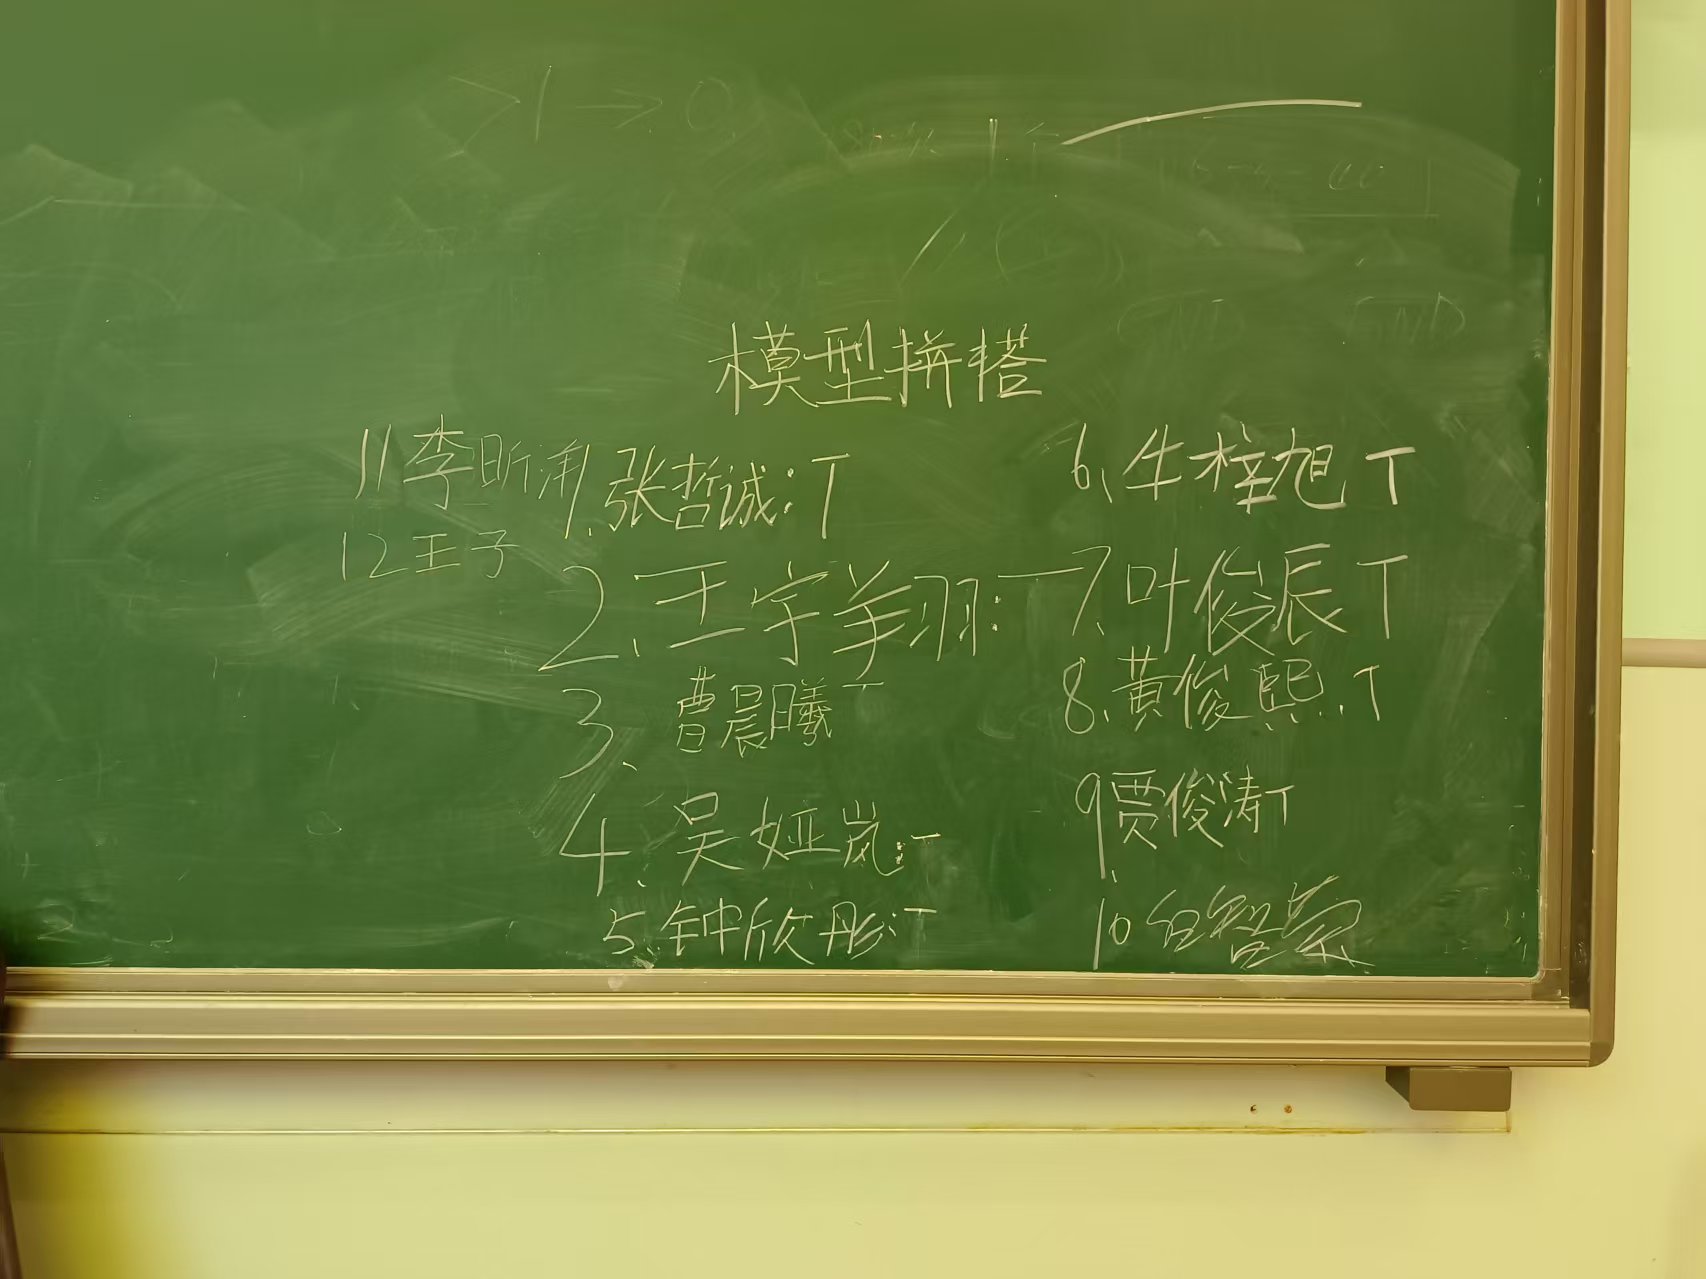 模型拼搭
11 李昕
1、张哲诚:T
12 王子
2、王宇羊羽:T
3、曹晨曦T
4、吴娅岚:T
5、钟欣彤:T
6、牛梓旭T
7、叶俊辰T
8、黄俊熙.T
9、贾俊涛T
10